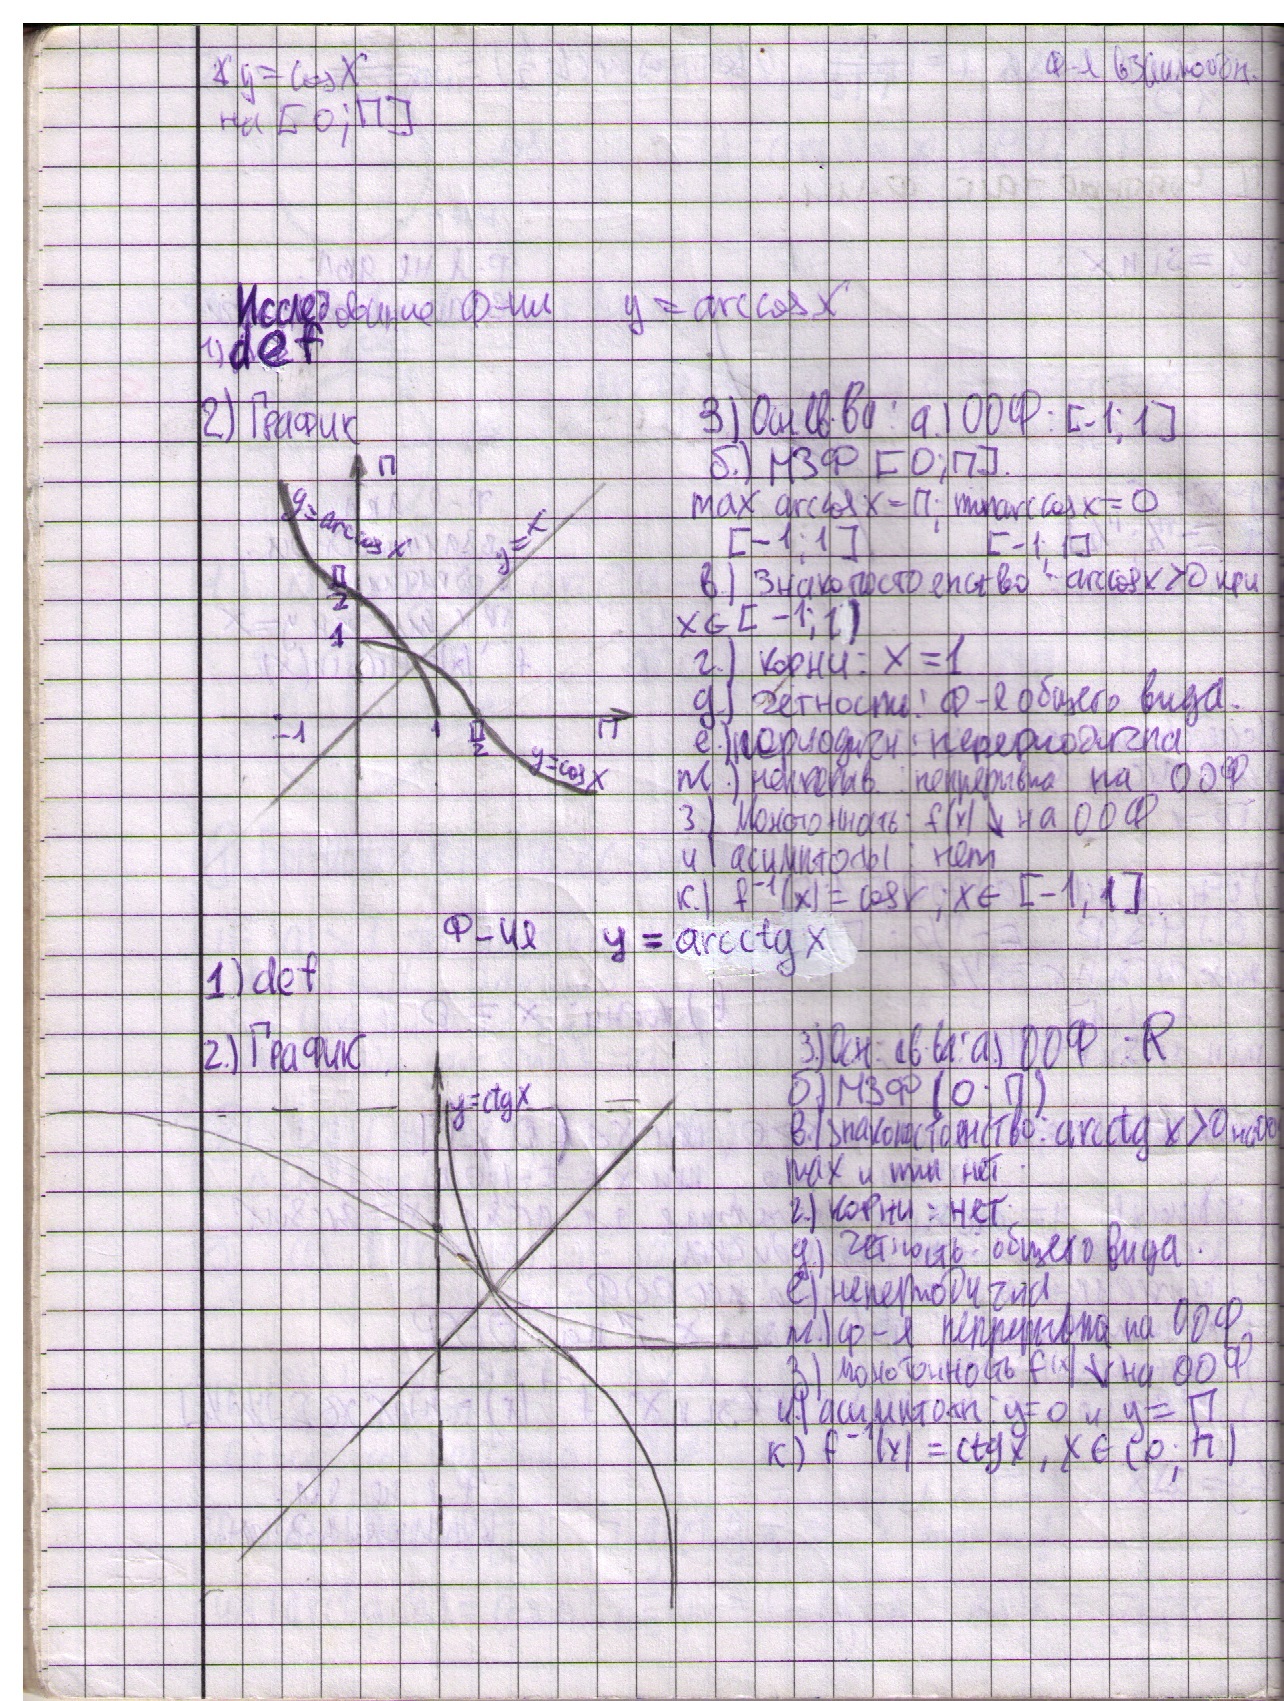 y=cosx
на [0;П]
Ф-я взаимообр.
Исследование Ф-ии y=arccosx
1) def
2) График
П
y=arccosx
y=x
П/2
1
-1
1
П/2
П
y=cosx
3) Осн. св-ва: а.) ООФ: [-1;1]
б.) МЗФ [0;П].
max arccosx=П; min arccosx=0
[-1;1] [-1;1]
в.) Знакопостоянство: arccosx>0 при
x∈[-1;1)
г.) корни: x=1
д.) четность: Ф-я общего вида.
е.) периодичн: непереодична
ж.) непрерыв: непрерывна на ООФ
з.) Монотонность: f(x)↓ на ООФ
и) асимптоты: нет
к.) f⁻¹(x)=cosx; x∈[-1,1].
Ф-ия y=arcctgx
1) def
2.) График
y=ctgx
3.) Осн. св-ва: а.) ООФ: R
б) МЗФ (0;П)
в.) знакопостоянство: arcctgx>0 на ОО
max и min нет.
г.) корни: нет.
д.) четность: общего вида.
е) непериодична
ж.) ф-я непрерывна на ООФ
з) монотонность f(x)↓ на ООФ
и.) асимптоты: y=0 и y=П
к) f⁻¹(x)=ctgx, x∈(0;П)